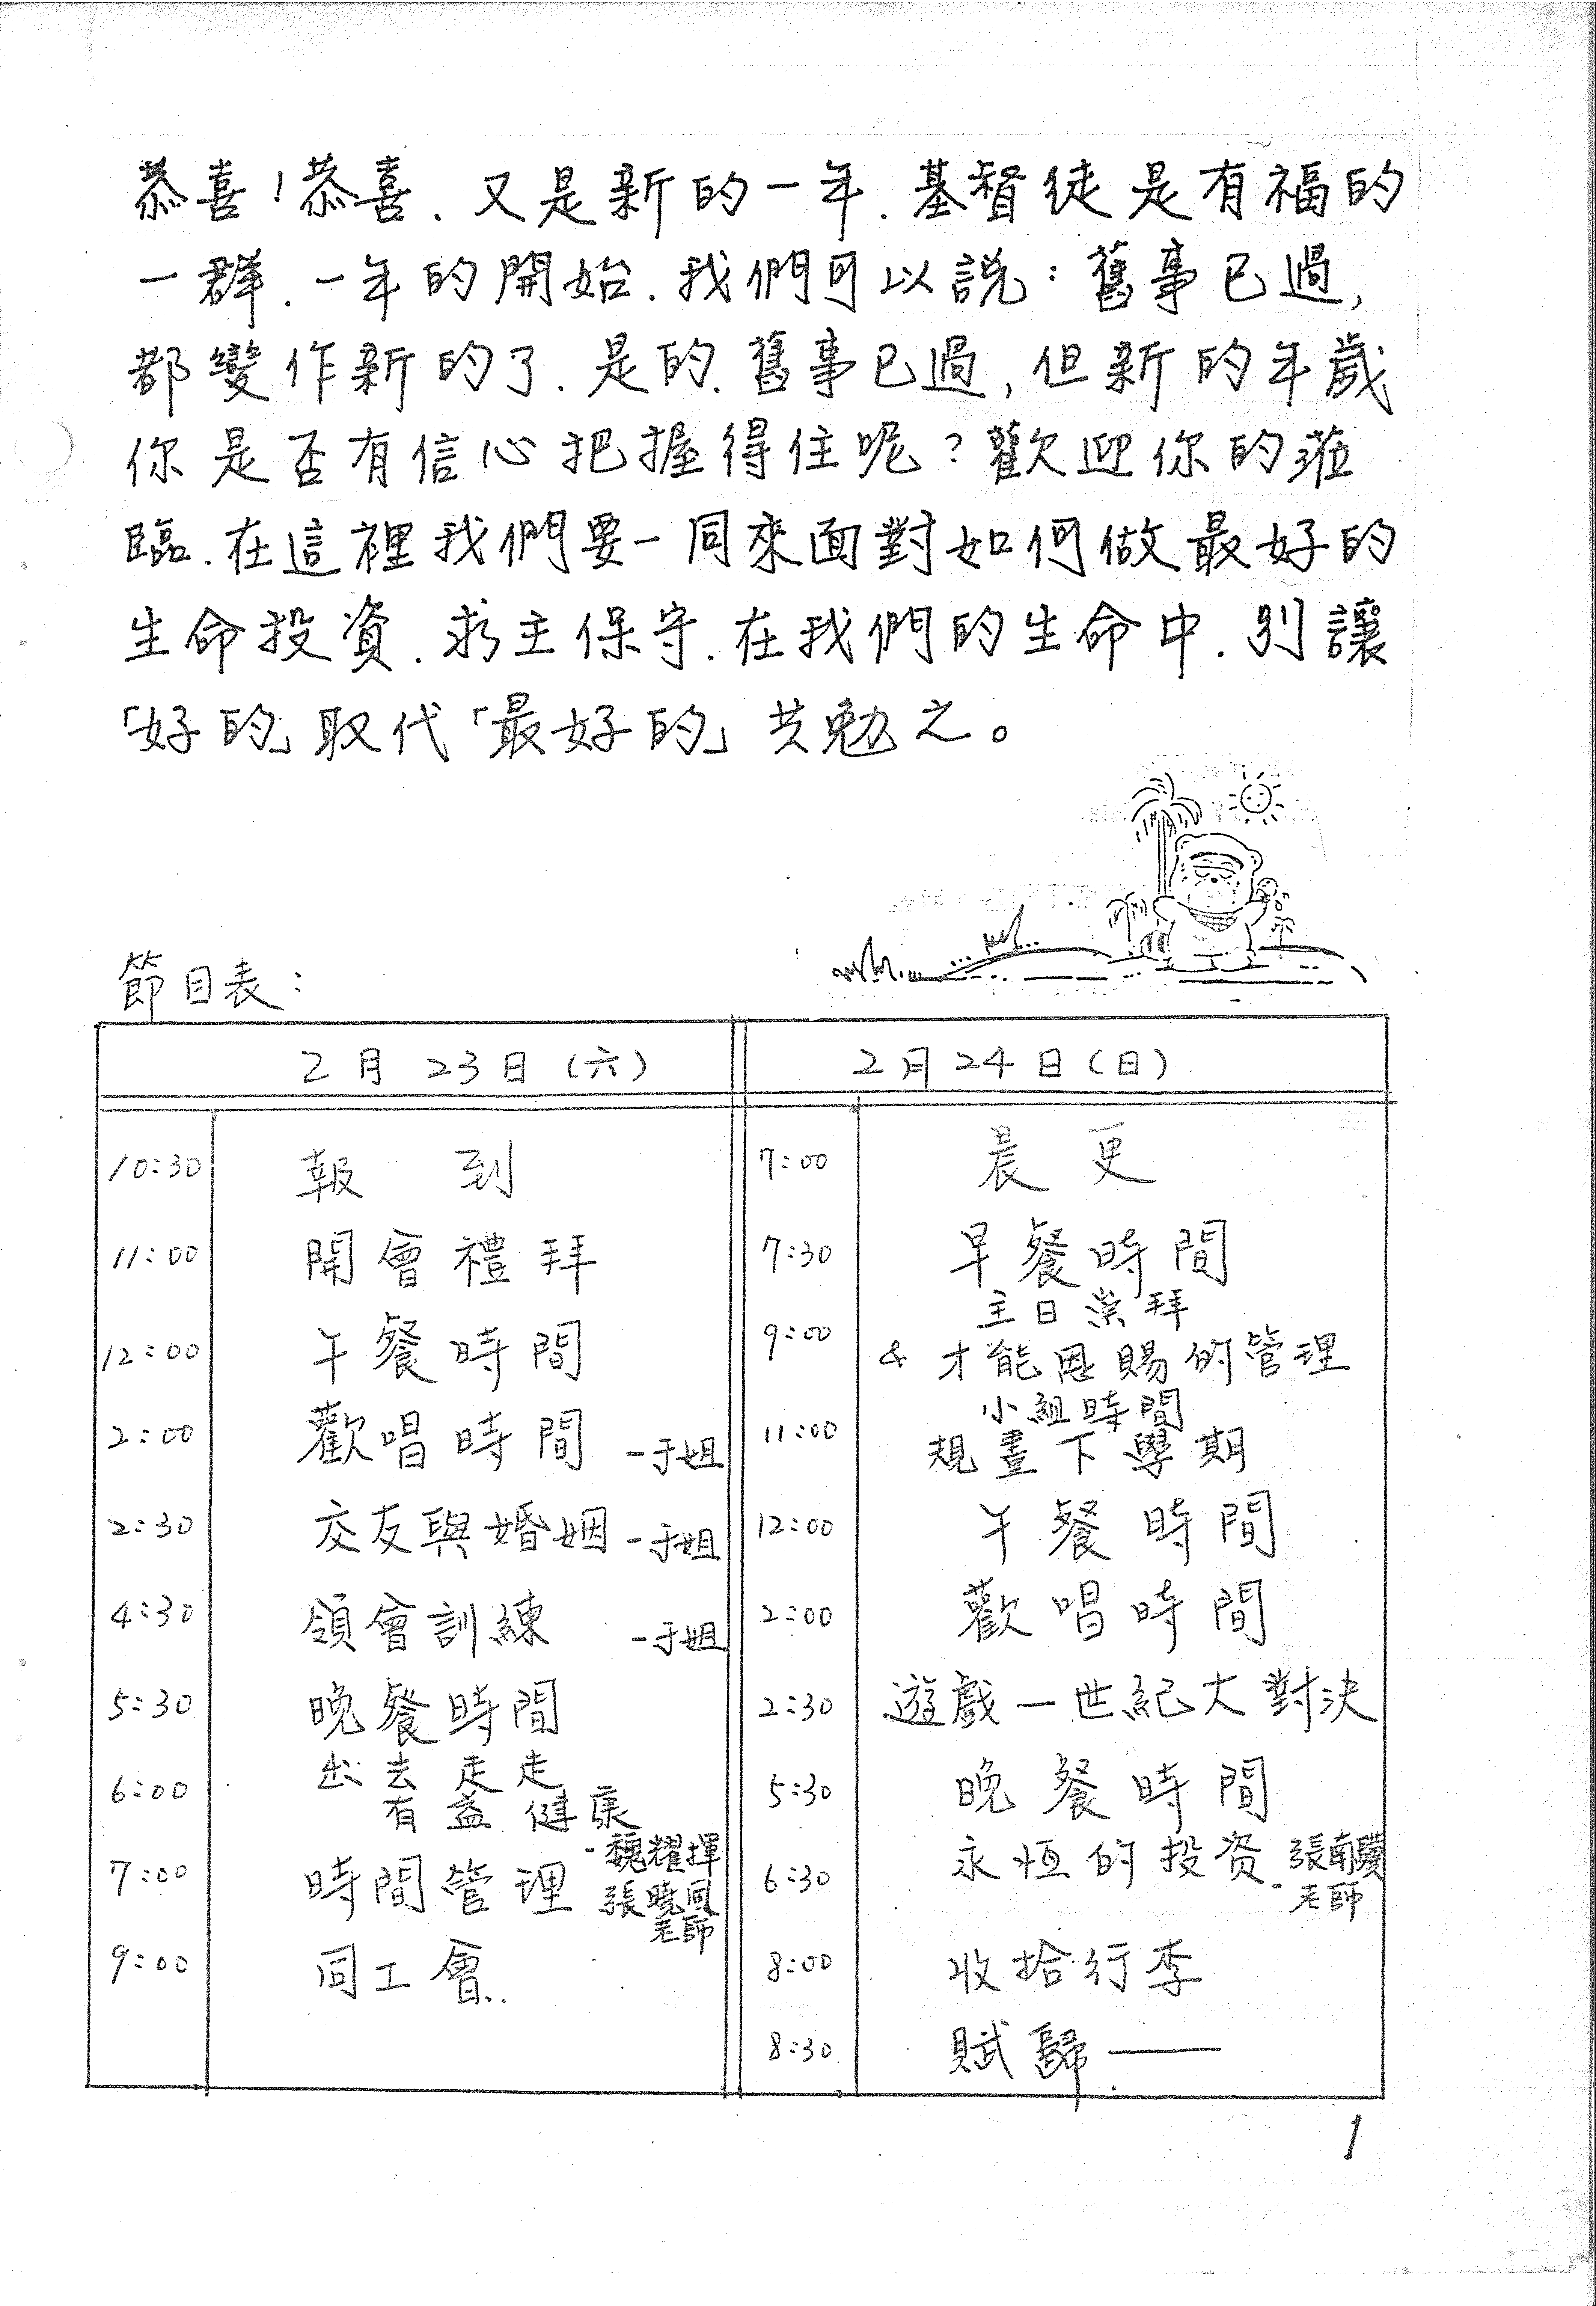 恭喜!恭喜.又是新的一年.基督徒是有福的
一群.一年的開始.我們可以說:舊事已過,
都變作新的了.是的.舊事已過,但新的年歲
你是否有信心把握得住呢?歡迎你的蒞
臨.在這裡我們要一同來面對如何做最好的
生命投資.求主保守.在我們的生命中.別讓
「好的」取代「最好的」共勉之。
節目表:
2月23日(六)
10:30 報到
11:00 開會禮拜
12:00 午餐時間
2:00 歡唱時間 -于姐
2:30 交友與婚姻 -于姐
4:30 領會訓練 -于姐
5:30 晚餐時間
6:00 出去走走
有益健康
7:00 時間管理 -魏耀揮
張曉
老師
9:00 同工會
2月24日(日)
7:00 晨更
7:30 早餐時間
9:00 主日崇拜
& 才能恩賜的管理
11:00 小組時間
規畫下學期
12:00 午餐時間
2:00 歡唱時間
2:30 遊戲一世紀大對決
5:30 晚餐時間
6:30 永恆的投资 -張南驥
老師
8:00 收拾行李
8:30 賦歸——
1